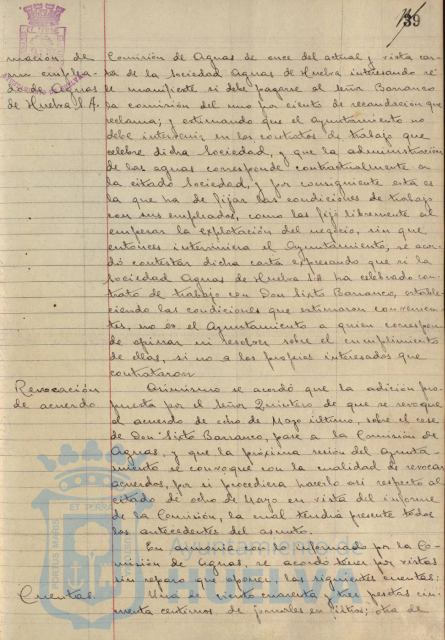 39
mación de
un emplea-
do de Aguas
de Huelva S. A.
Comisión de Aguas de once del actual y vista car-
ta de la Sociedad Aguas de Huelva interesando se
le manifieste si debe pagarse al Señor Barranco
la comisión del uno por ciento de recaudación que
reclama; y estimando que el Ayuntamiento no
debe intervenir en los contratos de trabajo que
celebre dicha Sociedad, y que la administración
de las aguas corresponde contractualmente a
la citada Sociedad, y por consiguiente esta es
la que ha de fijar las condiciones de trabajo
con sus empleados, como las fijó libremente al
empezar la explotación del negocio, sin que
entonces interviniera el Ayuntamiento, se acor-
dó contestar dicha carta expresando que si la
Sociedad Aguas de Huelva S.A. ha celebrado con-
trato de trabajo con Don Sixto Barranco, estable-
ciendo las condiciones que estimaron convenien-
tes, no es el Ayuntamiento a quien corresponde
de opinar ni resolver sobre el cumplimiento
de ellas, si no a los propios interesados que
contrataron.
Revocación
de acuerdo
Asimismo se acordó que la adición pro-
puesta por el Señor Quintero de que se revoque
el acuerdo de ocho de Mayo último, sobre el cese
de Don Sixto Barranco, pase a la Comisión de
Aguas, y que la próxima sesión del Ayunta-
miento se convoque con la cualidad de revocar
acuerdos, por si procediera hacerlo así respecto al
citado de ocho de Mayo en vista del informe
de la Comisión, la cual tendrá presente todos
los antecedentes del asunto.
En armonía con lo informado por la Co-
misión de Aguas, se acordó tener por vistas
sin reparo que oponer, las siguientes cuentas:
Cuentas.
Una de ciento cuarenta y tres pesetas cin-
cuenta centimos de jornales en filtros; otra de
Ayuntamiento de